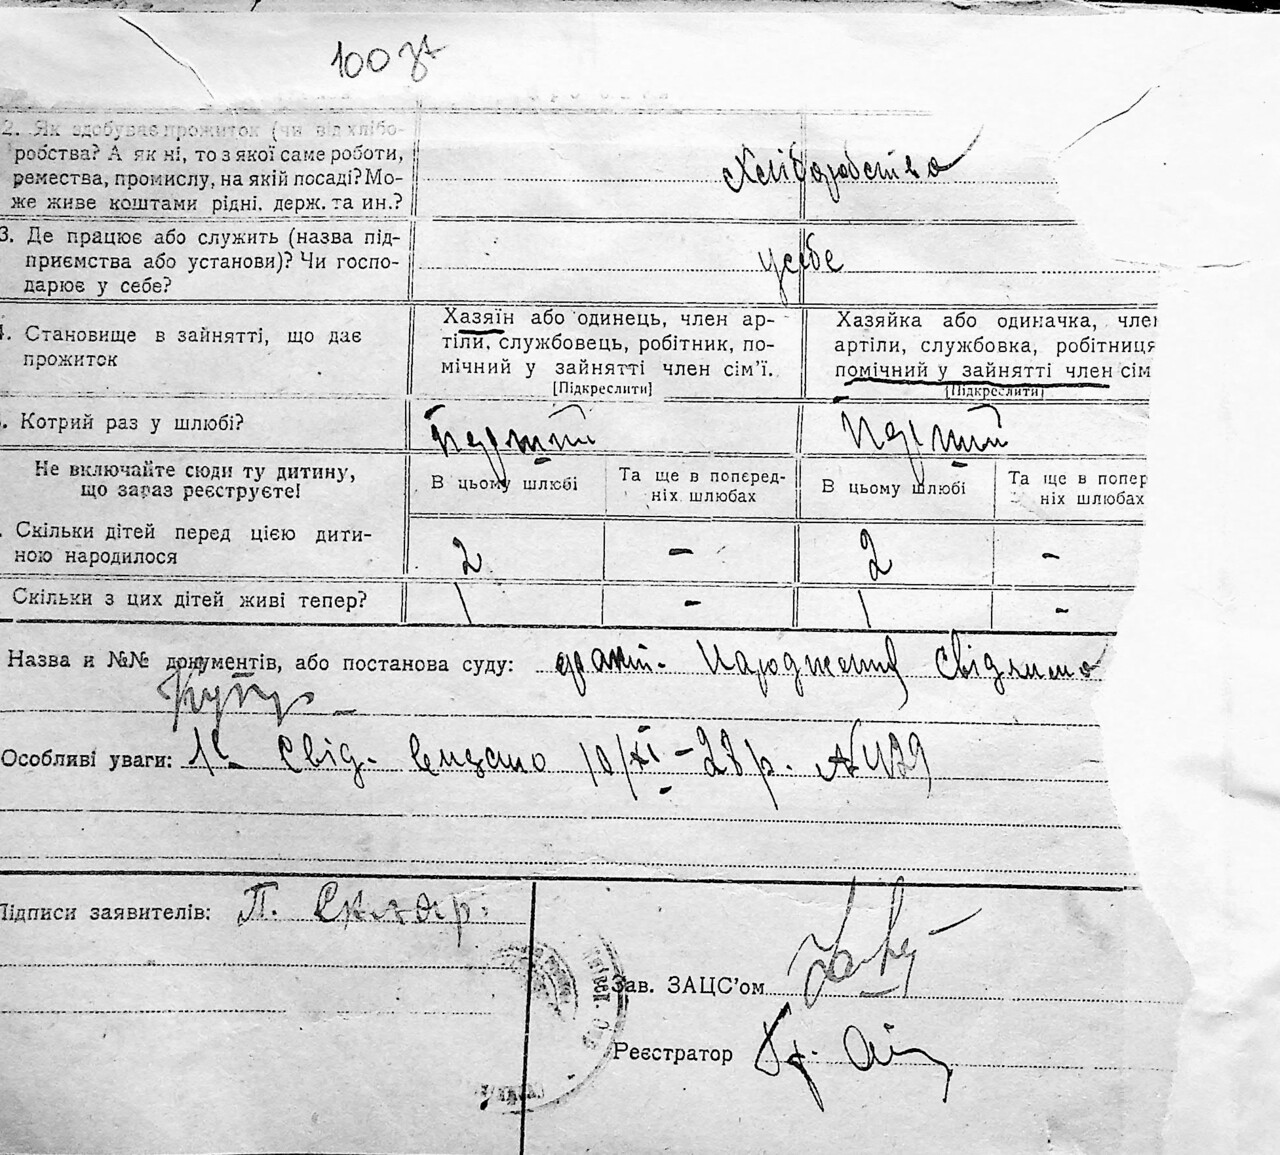 100 зл
2. Як здобуває прожиток (чи від хлібо-
робства? А як ні, то з якої саме роботи,
ремества, промислу, на якій посаді? Мо-
же живе коштами рідні, держ. та ин.?
Хліборобство
3. Де працює або служить (назва під-
приємства або установи)? Чи госпо-
дарює у себе?
у себе
4. Становище в зайнятті, що дає
прожиток
Хазяїн або одинець, член ар-
тіли, службовець, робітник, по-
мічний у зайнятті член сім'ї.
[Підкреслити]
Хазяйка або одиначка, член
артіли, службовка, робітниця
помічний у зайнятті член сім
[Підкреслити]
. Котрий раз у шлюбі?
Перший
Перший
Не включайте сюди ту дитину,
що зараз реєструєте!
В цьому шлюбі
Та ще в поперед-
ніх шлюбах
В цьому шлюбі
Та ще в попер
ніх шлюбах
. Скільки дітей перед цією дити-
ною народилося
2 - 2 -
Скільки з цих дітей живі тепер?
1 - 1 -
Назва и №№ документів, або постанова суду: факт. народження свідчимо
Особливі уваги: Свід. видано 10/XI-23р. №
Підписи заявителів: П. Скляр.
Зав. ЗАЦС'ом
Реєстратор